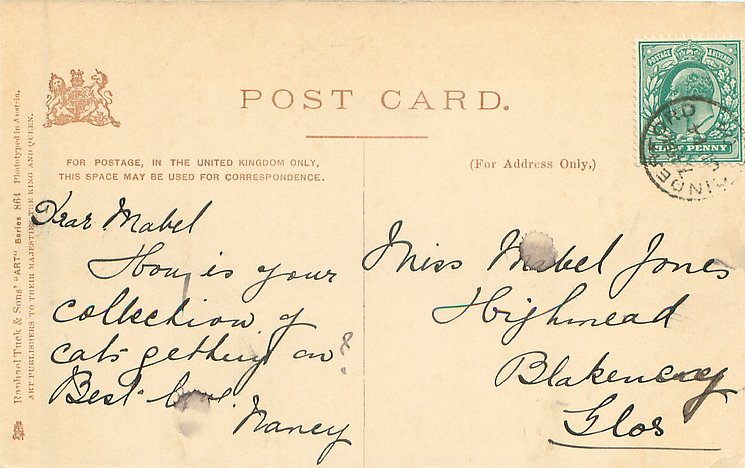 POST CARD.
POSTAGE REVENUE
HALF PENNY
FOR POSTAGE, IN THE UNITED KINGDOM ONLY,
THIS SPACE MAY BE USED FOR CORRESPONDENCE.
(For Address Only,)
Raphael Tuck & Sons' "ART" Series 864 Phototyped in Austria.
ART PUBLISHERS TO THEIR MAJESTIES THE KING AND QUEEN.
Dear Mabel
How is your
collection of
cats getting on?
Best love.
Nancy
Miss Mabel Jones
Highmead
Blakeney
Glos